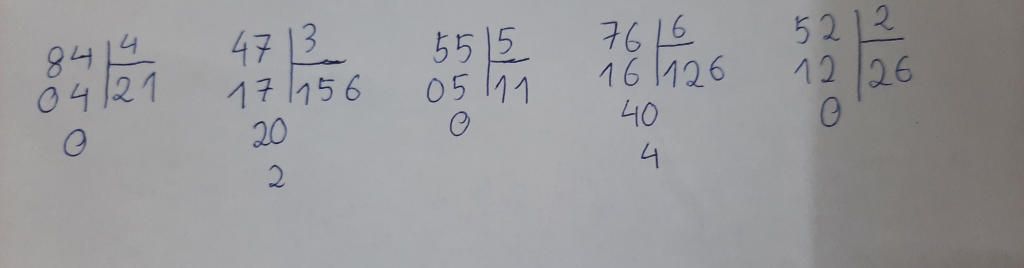 84 | 4 47 | 3 55 | 5 76 | 6 52 | 2
04 | 21 17 | 156 05 | 11 16 | 126 12 | 26
0 20 0 40 0
2 4